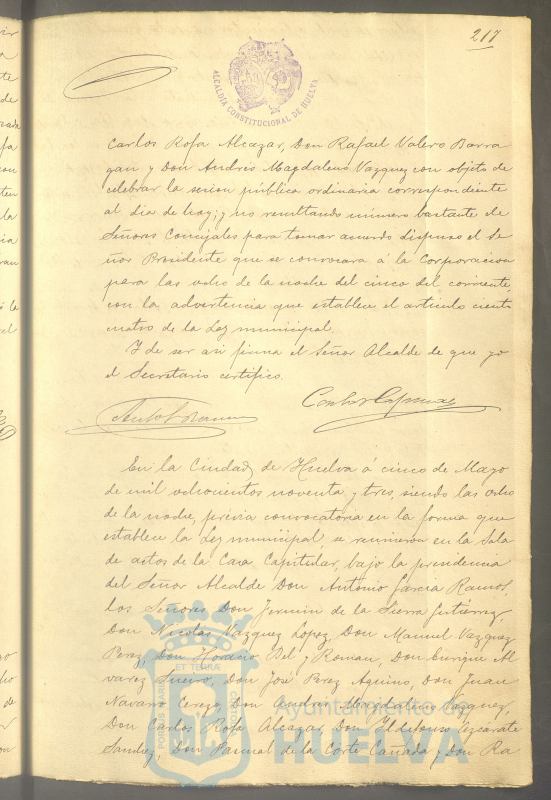 217
ALCALDIA CONSTITUCIONAL DE HUELVA
Carlos Rofa Alcazar, Don Rafael Valero Barra
gan y Don Andrés Magdaleno Vazquez con objeto de
celebrar la sesion pública ordinaria correspondiente
al dia de hoy; y no resultando número bastante de
Señores Concejales para tomar acuerdo dispuso el Se
ñor Presidente que se convocara á la Corporacion
para las ocho de la noche del cinco del corriente,
con la advertencia que establece el articulo ciento
cuatro de la Ley municipal.
Y de ser asi firma el Señor Alcalde de que yo
el Secretario certifico.
En la Ciudad de Huelva á cinco de Mayo
de mil ochocientos noventa y tres, siendo las ocho
de la noche, previa convocatoria en la forma que
establece la Ley municipal, se reunieron en la Sala
de actos de la Casa Capitular, bajo la presidencia
del Señor Alcalde Don Antonio Garcia Ramos,
los Señores Don Fermin de la Sierra Gutiérrez,
Don Nicolas Vazquez Lopez, Don Manuel Vazquez
Perez, Don Horacio Bel y Roman, Don Enrique Al
varez Suero, Don José Perez Aquino, Don Juan
Navarro Cerezo, Don Andres Magdaleno Vazquez,
Don Carlos Rofa Alcazar, Don Ildefonso Azcárate
Sanchez, Don Pascual de la Corte Cañada y Don Ra
Ayuntamiento de
HUELVA